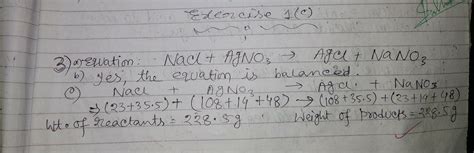 Exercise 1(c)
3) a) Equation: Nacl + AgNO₃ → Agcl + NaNO₃
b) yes, the equation is balanced.
c) Nacl + AgNO₃ → Agcl + NaNO₃
⇒ (23+35.5) + (108+14+48) → (108+35.5) + (23+14+48)
Wt. of reactants = 228.5g Weight of products = 228.5g